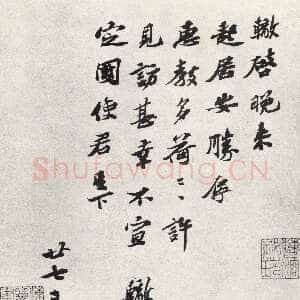 轍啓晚來
起居安勝辱
惠教多荷〻許
見訪甚幸不宣 轍
定國使君足下
廿七
Shufawang.CN